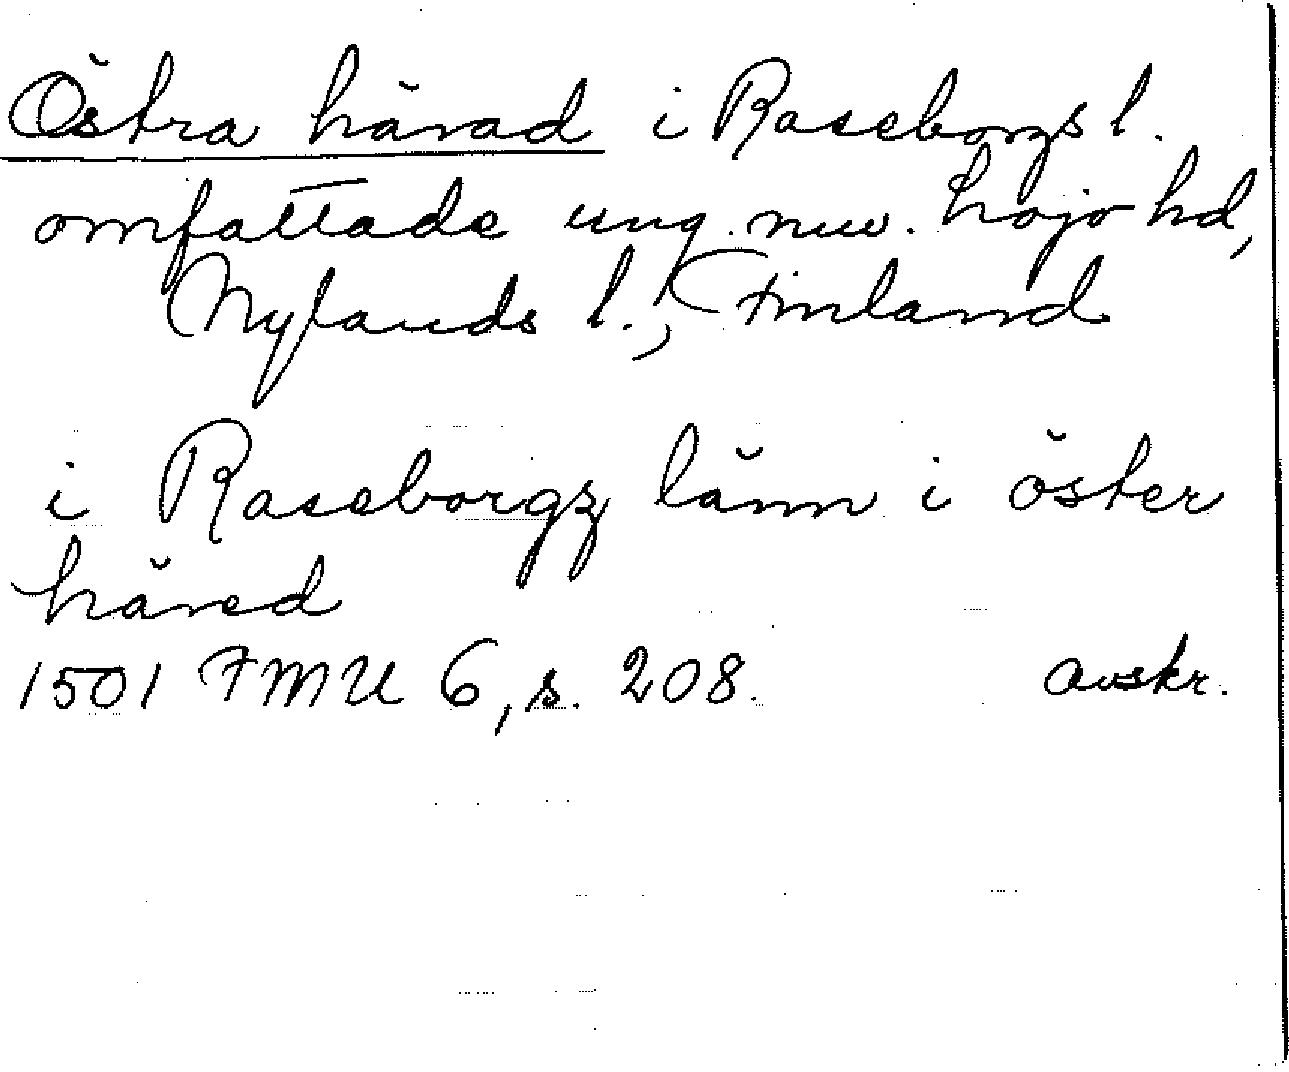 Östra härad i Raseborgs l.
omfattade ung. nuv. Lojo hd,
Nylands l., Finland
i Raseborgz länn i öster
häred
1501 FMU 6, s. 208. avskr.